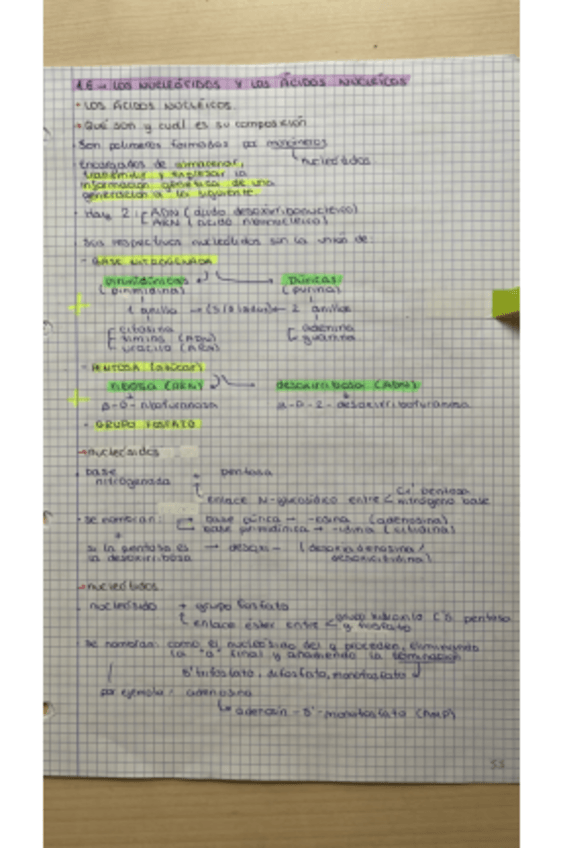 1.6 → LOS NUCLEÓTIDOS Y LOS ÁCIDOS NUCLEÍCOS
• LOS ÁCIDOS NUCLÉICOS
→ Qué son y cuál es su composición
Son polímeros formados por monómeros
nucleótidos
Encargados de almacenar,
transmitir y expresar la
información genética de una
generación a la siguiente
• Hay 2: ADN (ácido desoxirribonucleico)
ARN (ácido ribonucleico)
Sus respectivos nucleótidos son la unión de:
- BASE NITROGENADA
pirimidínicas → púricas
(pirimidina) (purina)
1 anillo 2 anillos
citosina adenina
timina (ADN) guanina
uracilo (ARN)
- PENTOSA (azúcar)
ribosa (ARN) → desoxirribosa (ADN)
β-D-ribofuranosa β-D-2-desoxirribofuranosa
- GRUPO FOSFATO
→ nucleósidos
base + pentosa
nitrogenada
enlace N-glucosídico entre < C1' pentosa
nitrógeno base
• se nombran: → base púrica → -osina (adenosina)
base pirimidínica → -idina (citidina)
+
si la pentosa es → desoxi- (desoxiadenosina/
la desoxirribosa desoxicitidina)
→ nucleótidos
nucleósido + grupo fosfato
enlace éster entre < grupo hidroxilo C5 pentosa
y fosfato
se nombran: como el nucleósido del q proceden, eliminando
la "a" final y añadiendo la terminación
5' trifosfato, difosfato, monofosfato
por ejemplo: adenosina
↳ adenosín-5'-monofosfato (AMP)